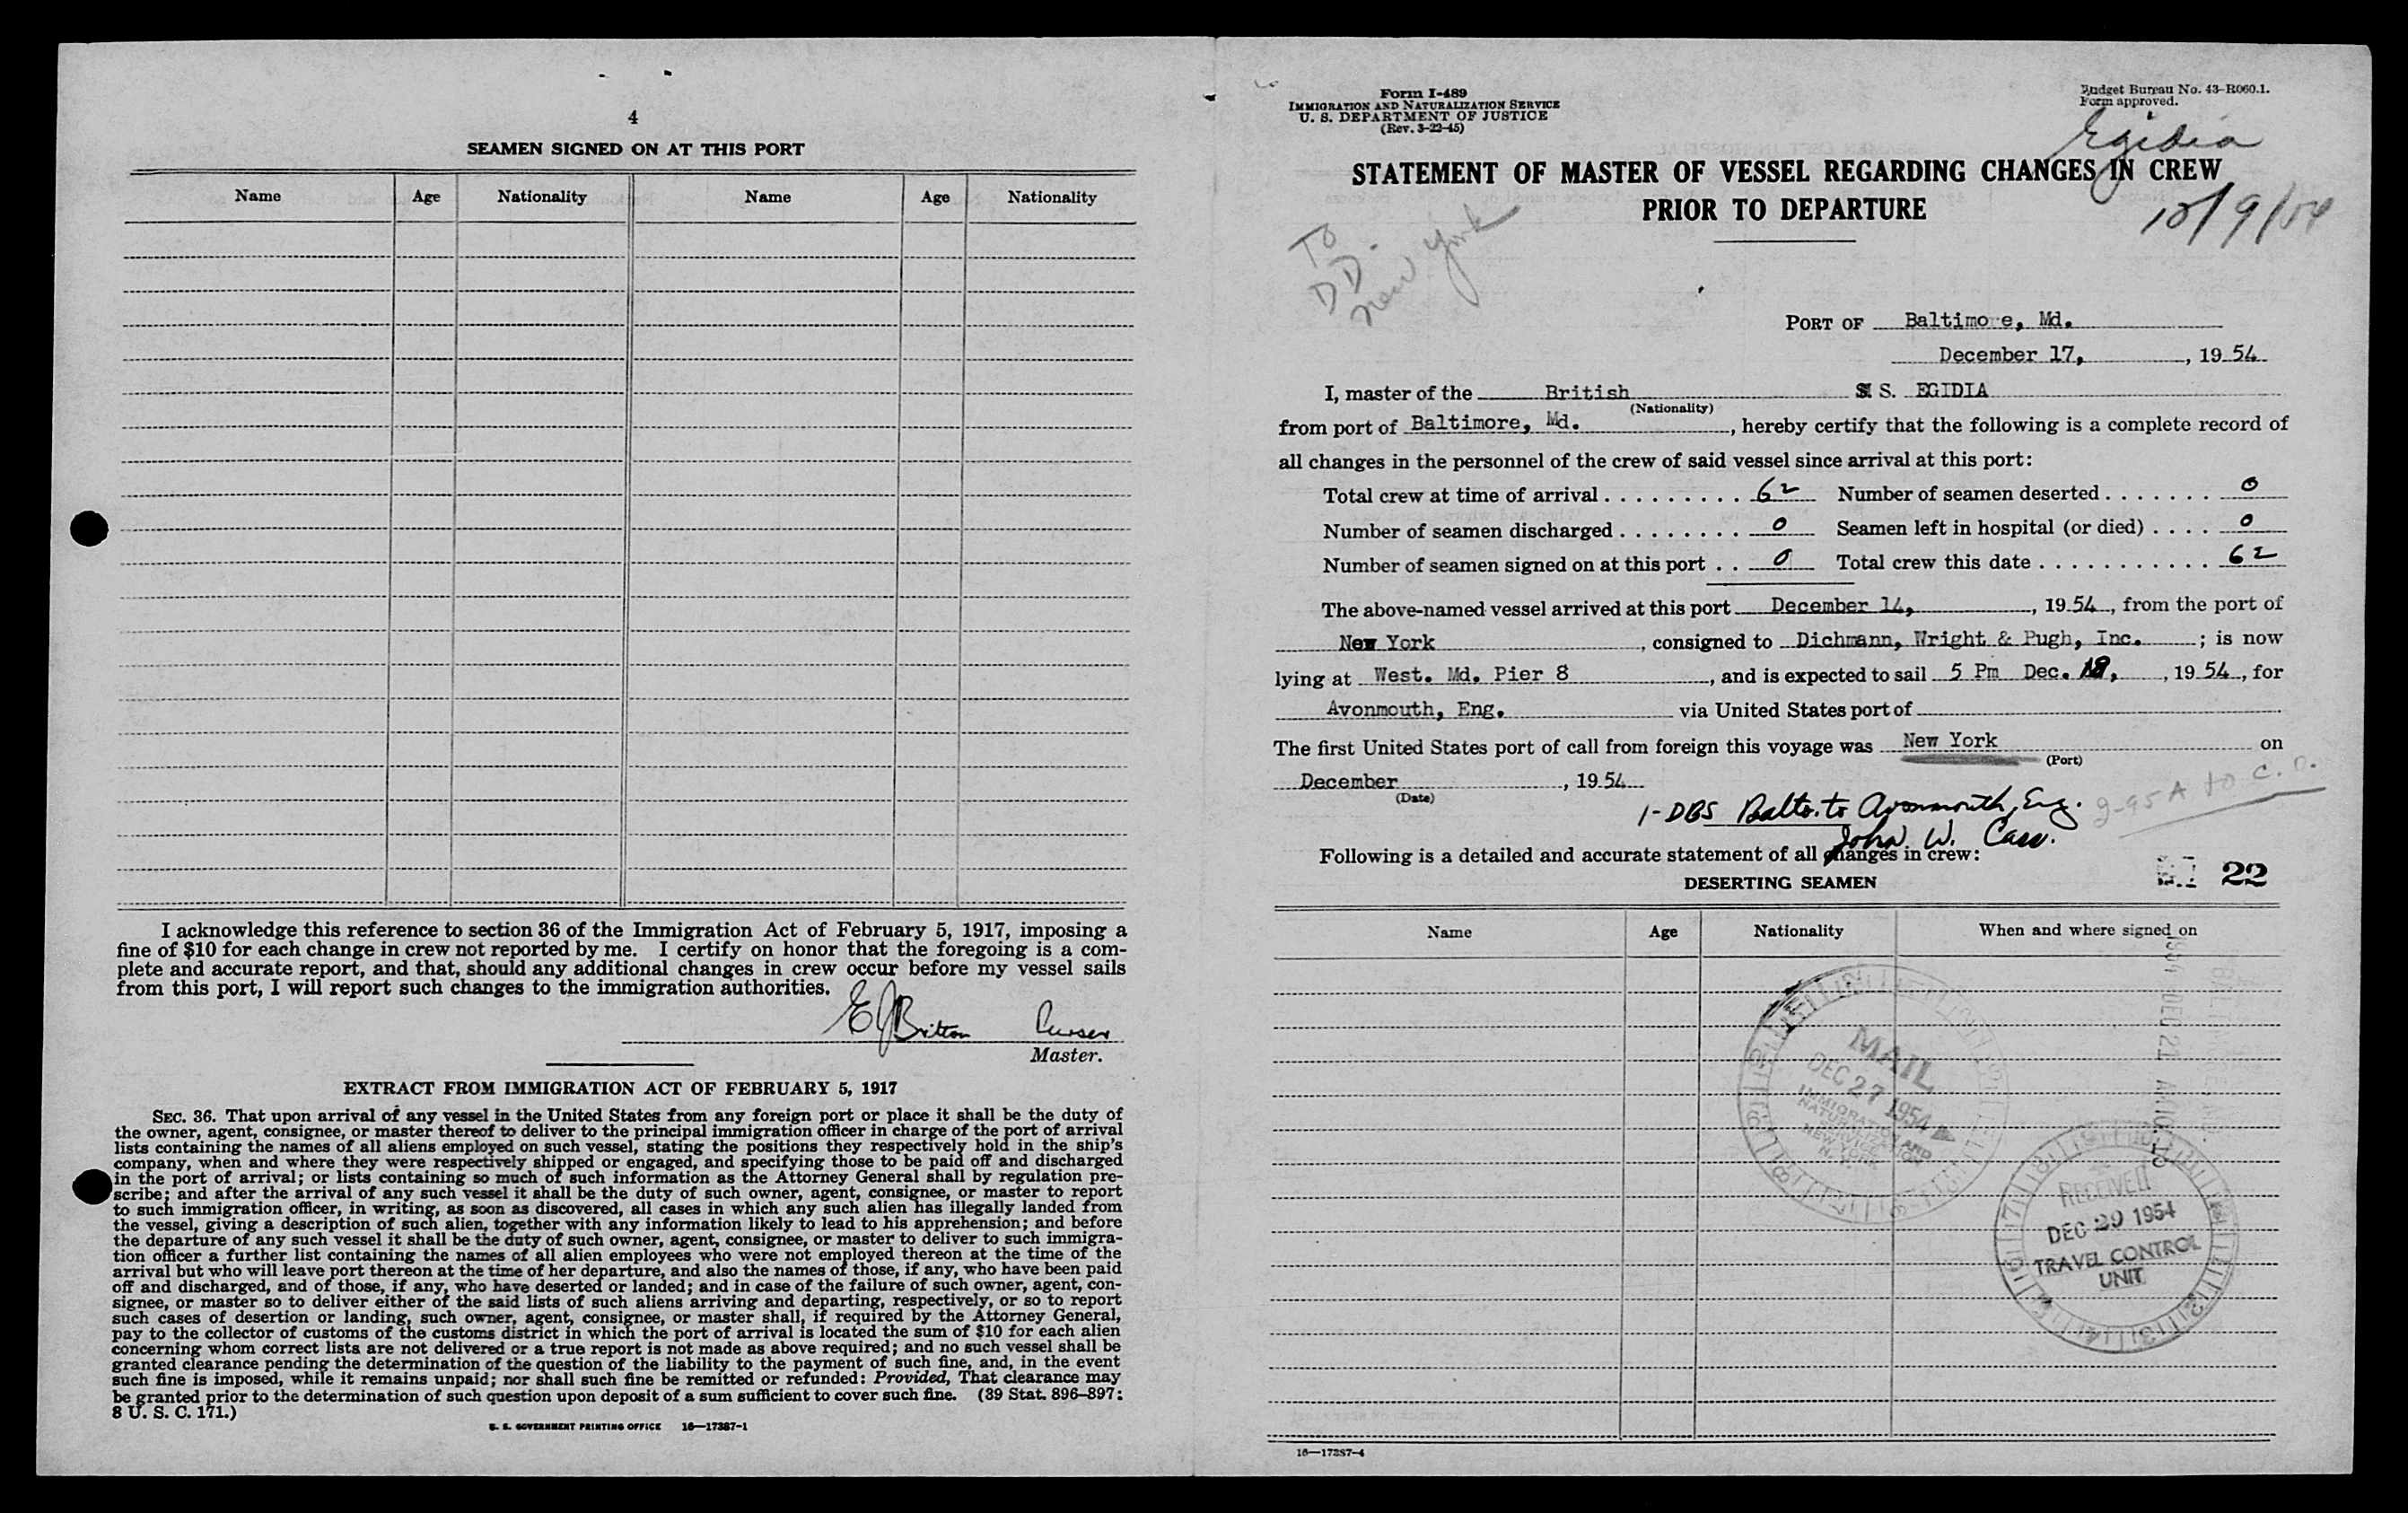 4
SEAMEN SIGNED ON AT THIS PORT
Name Age Nationality Name Age Nationality
I acknowledge this reference to section 36 of the Immigration Act of February 5, 1917, imposing a
fine of $10 for each change in crew not reported by me. I certify on honor that the foregoing is a com-
plete and accurate report, and that, should any additional changes in crew occur before my vessel sails
from this port, I will report such changes to the immigration authorities.
EJ Britton Purser
Master.
EXTRACT FROM IMMIGRATION ACT OF FEBRUARY 5, 1917
SEC. 36. That upon arrival of any vessel in the United States from any foreign port or place it shall be the duty of
the owner, agent, consignee, or master thereof to deliver to the principal immigration officer in charge of the port of arrival
lists containing the names of all aliens employed on such vessel, stating the positions they respectively hold in the ship's
company, when and where they were respectively shipped or engaged, and specifying those to be paid off and discharged
in the port of arrival; or lists containing so much of such information as the Attorney General shall by regulation pre-
scribe; and after the arrival of any such vessel it shall be the duty of such owner, agent, consignee, or master to report
to such immigration officer, in writing, as soon as discovered, all cases in which any such alien has illegally landed from
the vessel, giving a description of such alien, together with any information likely to lead to his apprehension; and before
the departure of any such vessel it shall be the duty of such owner, agent, consignee, or master to deliver to such immigra-
tion officer a further list containing the names of all alien employees who were not employed thereon at the time of the
arrival but who will leave port thereon at the time of her departure, and also the names of those, if any, who have been paid
off and discharged, and of those, if any, who have deserted or landed; and in case of the failure of such owner, agent, con-
signee, or master so to deliver either of the said lists of such aliens arriving and departing, respectively, or so to report
such cases of desertion or landing, such owner, agent, consignee, or master shall, if required by the Attorney General,
pay to the collector of customs of the customs district in which the port of arrival is located the sum of $10 for each alien
concerning whom correct lists are not delivered or a true report is not made as above required; and no such vessel shall be
granted clearance pending the determination of the question of the liability to the payment of such fine, and, in the event
such fine is imposed, while it remains unpaid; nor shall such fine be remitted or refunded: Provided, That clearance may
be granted prior to the determination of such question upon deposit of a sum sufficient to cover such fine. (39 Stat. 896–897:
8 U. S. C. 171.)
U. S. GOVERNMENT PRINTING OFFICE 16—17387-1
Form I-489
IMMIGRATION AND NATURALIZATION SERVICE
U. S. DEPARTMENT OF JUSTICE
(Rev. 3-22-45)
Budget Bureau No. 43-R060.1.
Form approved.
Egidia
STATEMENT OF MASTER OF VESSEL REGARDING CHANGES IN CREW
PRIOR TO DEPARTURE
12/9/54
To
DD.
New York
PORT OF Baltimore, Md.
December 17, , 1954
I, master of the British S. S. EGIDIA
(Nationality)
from port of Baltimore, Md. , hereby certify that the following is a complete record of
all changes in the personnel of the crew of said vessel since arrival at this port:
Total crew at time of arrival . . . . . . . . . 62 Number of seamen deserted . . . . . . . 0
Number of seamen discharged . . . . . . . . 0 Seamen left in hospital (or died) . . . . 0
Number of seamen signed on at this port . . 0 Total crew this date . . . . . . . . . . . 62
The above-named vessel arrived at this port December 14, , 1954, from the port of
New York , consigned to Dichmann, Wright & Pugh, Inc. ; is now
lying at West. Md. Pier 8 , and is expected to sail 5 Pm Dec. 18, , 1954, for
Avonmouth, Eng. via United States port of
The first United States port of call from foreign this voyage was New York on
(Port)
December , 1954
(Date)
1-DBS Balto. to Avonmouth, Eng.
John W.
Following is a detailed and accurate statement of all changes in crew:
DESERTING SEAMEN
22
Name Age Nationality When and where signed on
1954 DEC 21
MAIL
DEC 27 1954
IMMIGRATION AND
NATURALIZATION
SERVICE
NEW YORK
N. Y.
RECEIVED
DEC 29 1954
TRAVEL CONTROL
UNIT
16—17387-4